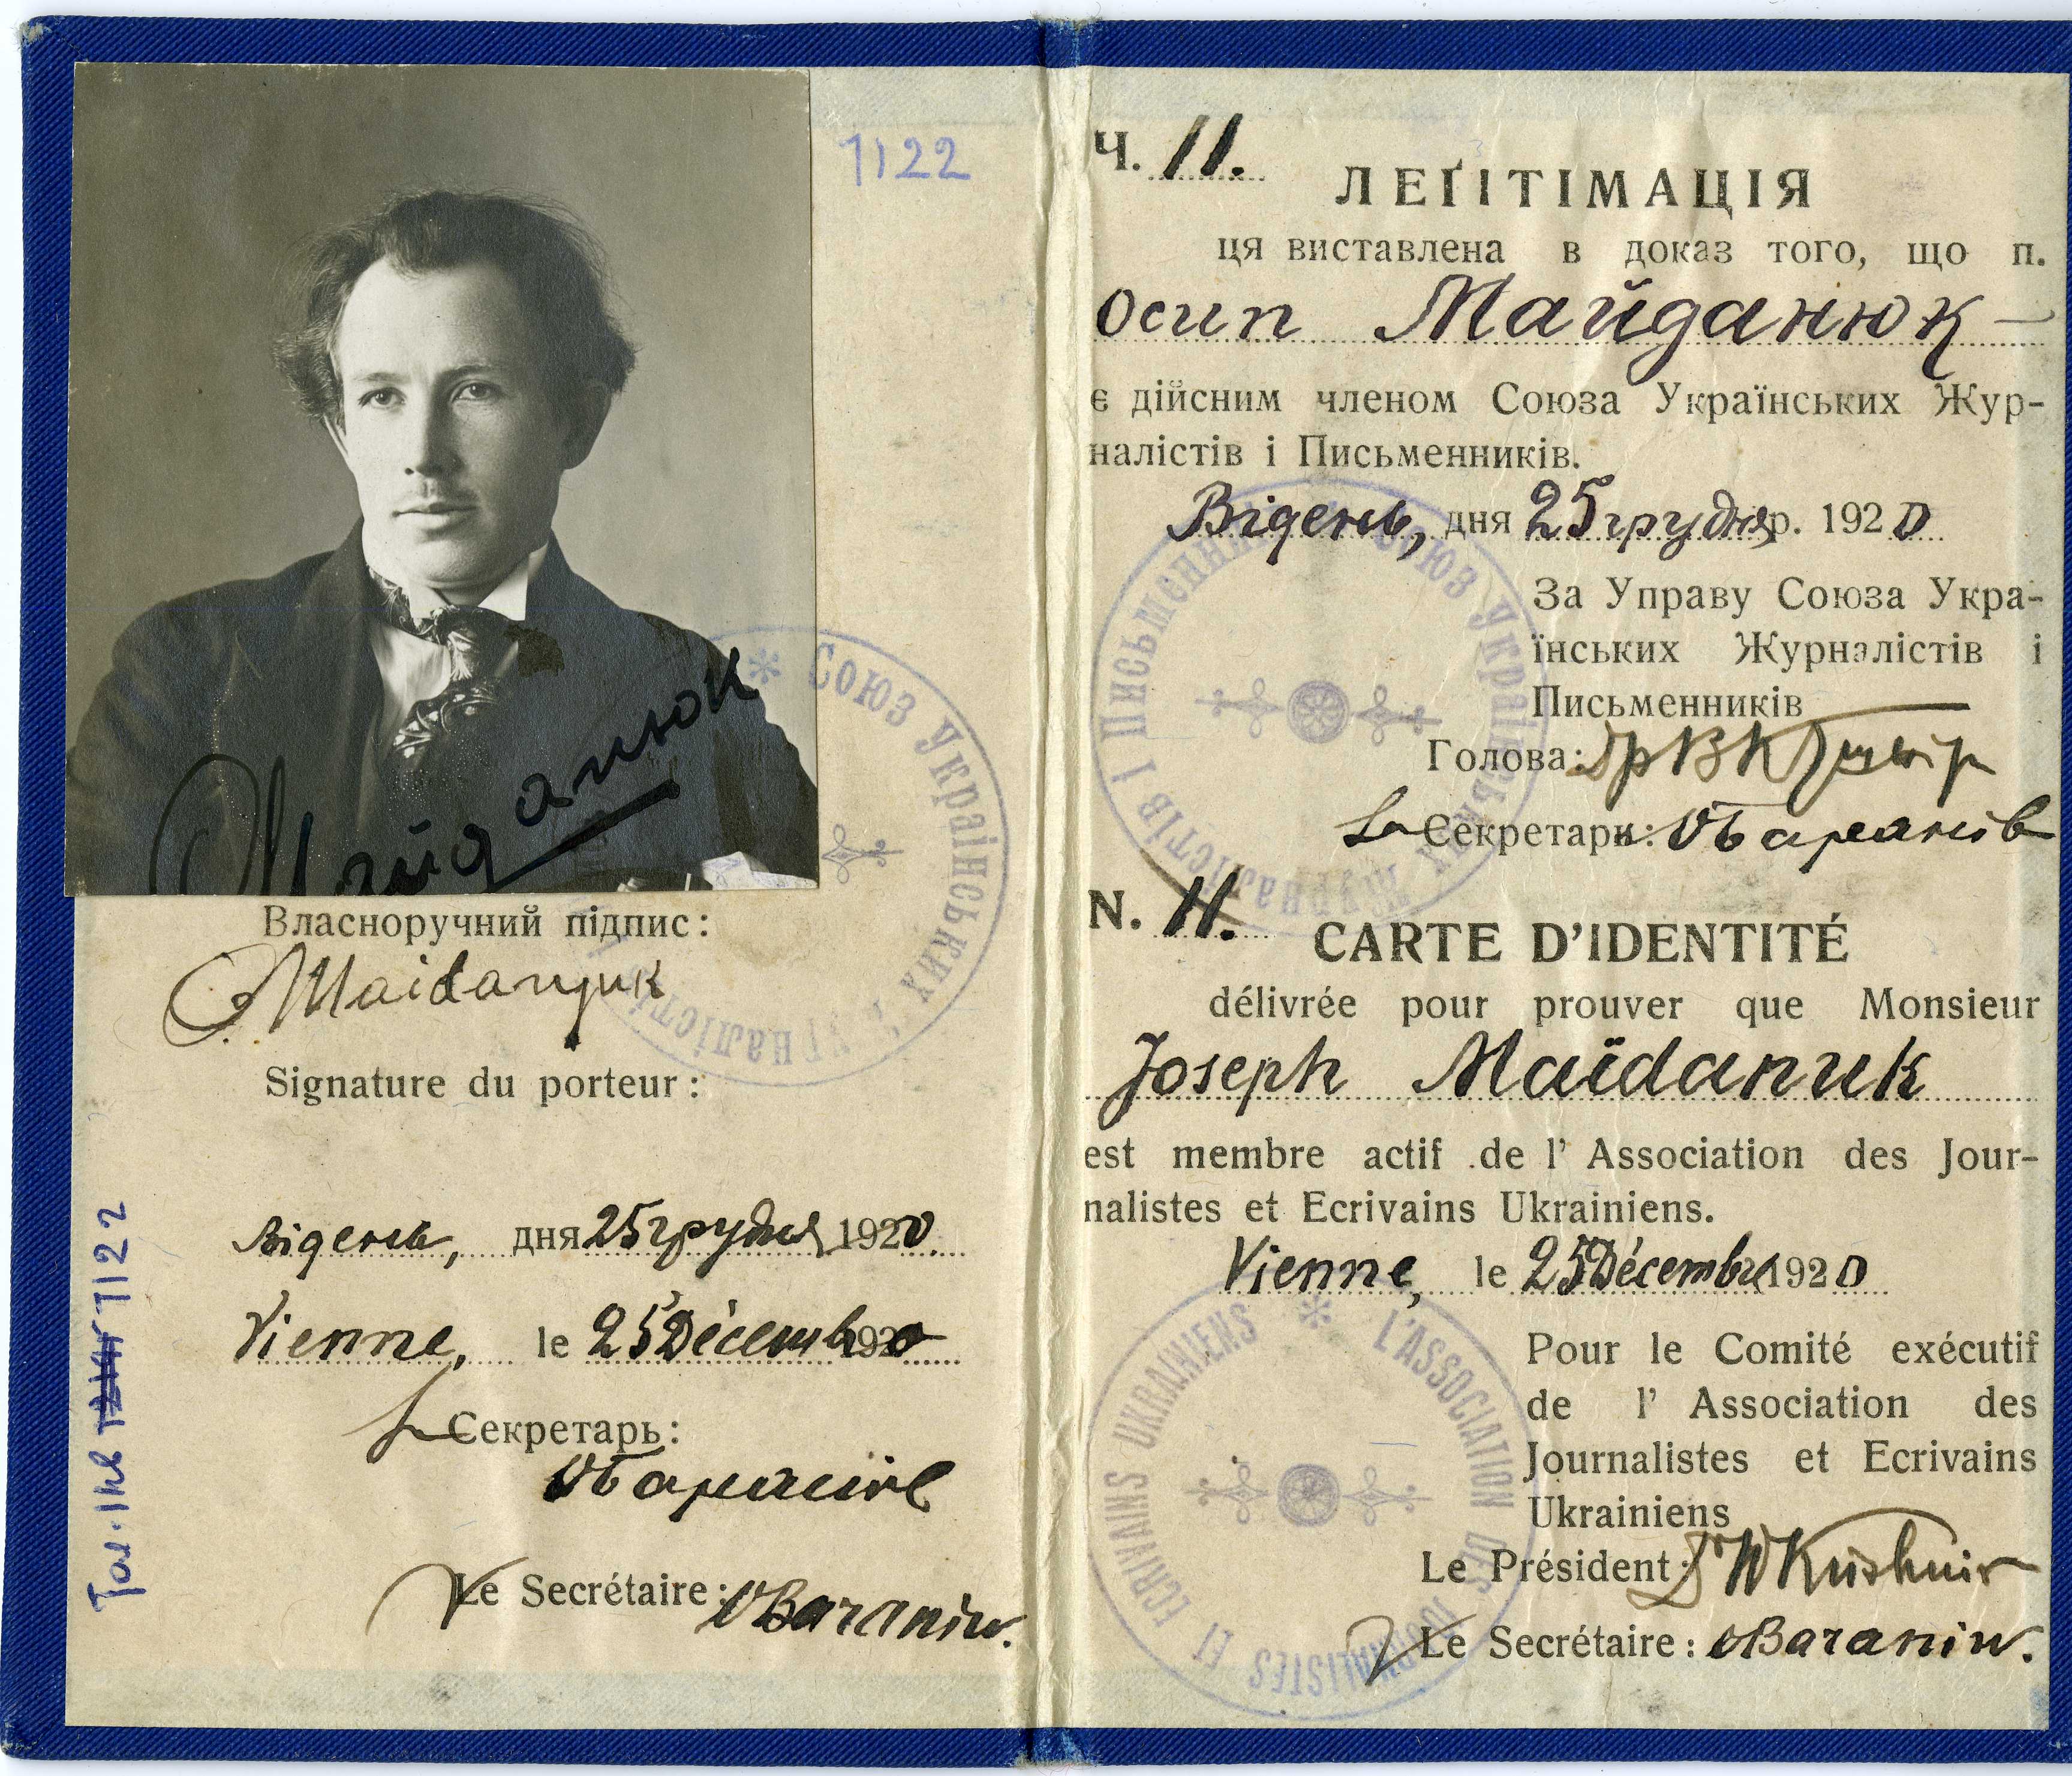 1122
Майданюк
Союз Українських
Власноручний підпис:
Maidanjuk
Signature du porteur:
Відень, дня 25 грудня 1920.
Vienne, le 25 Décembre 1920
Секретарь:
ОБаранів
Le Secrétaire: OBaraniw.
Тол. Інв 1122
Ч. 11.
ЛЕҐІТІМАЦІЯ
ця виставлена в доказ того, що п.
Осип Майданюк —
є дійсним членом Союза Українських Жур-
налістів і Письменників.
Відень, дня 25 грудня р. 1920
За Управу Союза Укра-
їнських Журналістів і
Письменників
Голова: Др ВКушнір
Секретарь: ОБаранів
Союз Українських Журналістів і Письменників
N. 11.
CARTE D'IDENTITÉ
délivrée pour prouver que Monsieur
Joseph Maïdanuk
est membre actif de l' Association des Jour-
nalistes et Ecrivains Ukrainiens.
Vienne, le 25 Décembre 1920
Pour le Comité exécutif
de l' Association des
Journalistes et Ecrivains
Ukrainiens
Le Président: Dr WKushnir
Le Secrétaire: OBaraniw.
L'ASSOCIATION DES JOURNALISTES ET ECRIVAINS UKRAINIENS